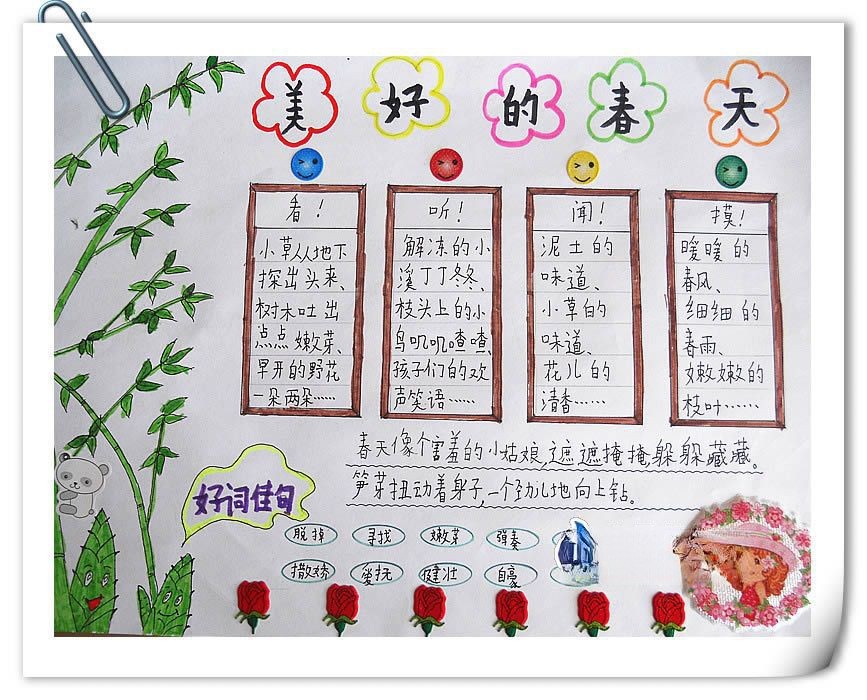 美好的春天
看！
小草从地下
探出头来、
树木吐出
点点嫩芽、
早开的野花
一朵两朵……
听！
解冻的小
溪丁丁冬冬、
枝头上的小
鸟叽叽喳喳、
孩子们的欢
声笑语……
闻！
泥土的
味道、
小草的
味道、
花儿的
清香……
摸！
暖暖的
春风、
细细的
春雨、
嫩嫩的
枝叶……
春天像个害羞的小姑娘，遮遮掩掩，躲躲藏藏。
笋芽扭动着身子，一个劲儿地向上钻。
好词佳句
脱掉 寻找 嫩芽 弹奏
撒娇 爱抚 健壮 自豪